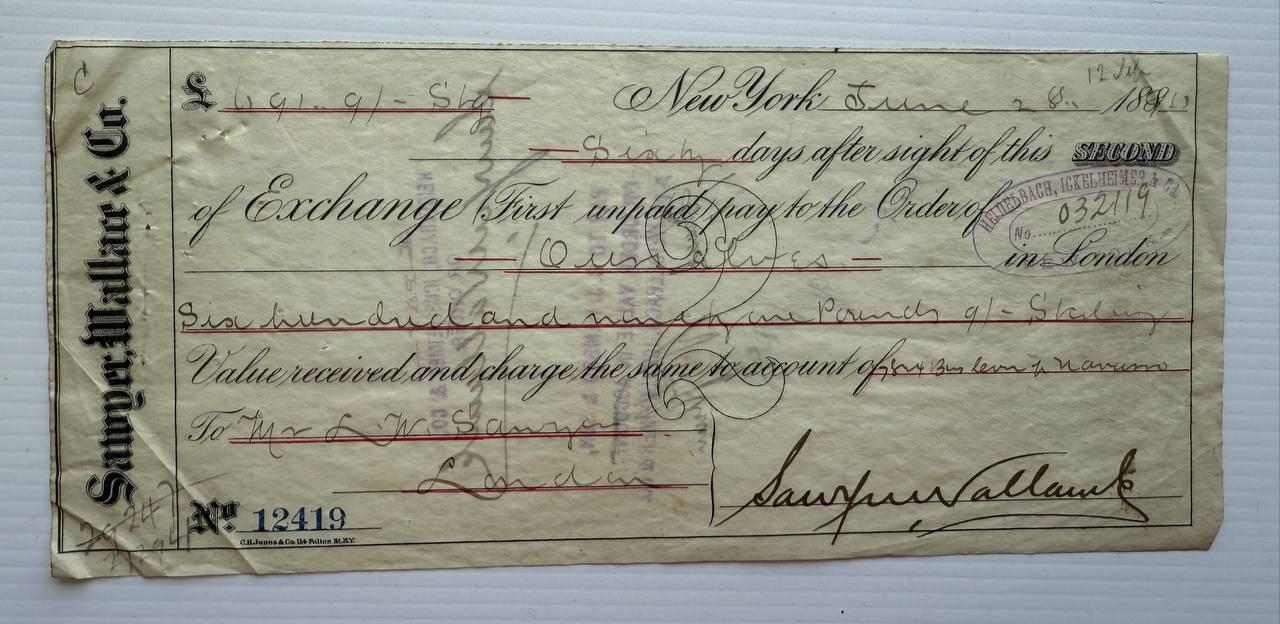 Sawyer, Wallace & Co.
C
£ 691.. 9/- Stg
New York June 28.. 188
days after sight of this SECOND
Sixty
of Exchange (First unpaid) pay to the Order of
HEIDELBACH, ICKELHEIMER & Co.
No. 032119
Ourselves in London
Six hundred and ninety one Pounds 9/- Sterling
Value received and charge the same to account of Navarro
To Mr L W. Sawyer
London
Sawyer Wallace & Co
No 12419
C.H. Jones & Co. 114 Fulton St. N.Y.